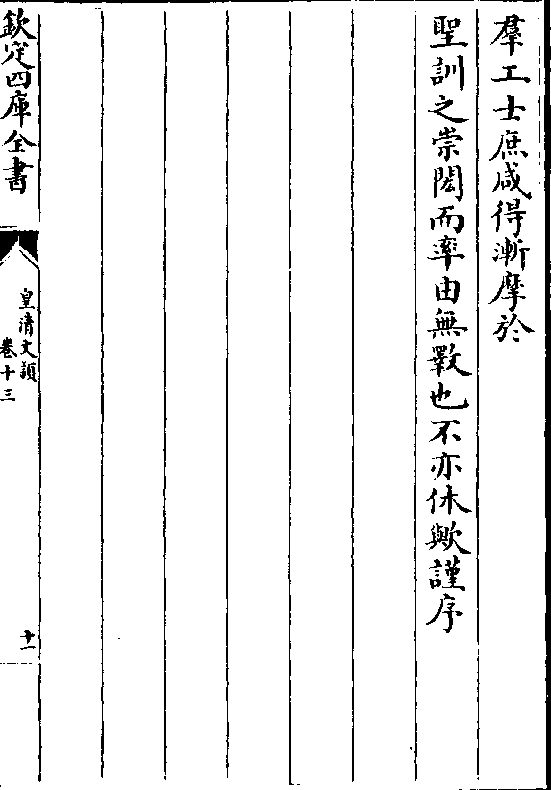 羣工士庶咸得漸摩於
聖訓之崇閎而率由無斁也不亦休歟謹序
欽定四庫全書
皇清文頴
卷十三
十一